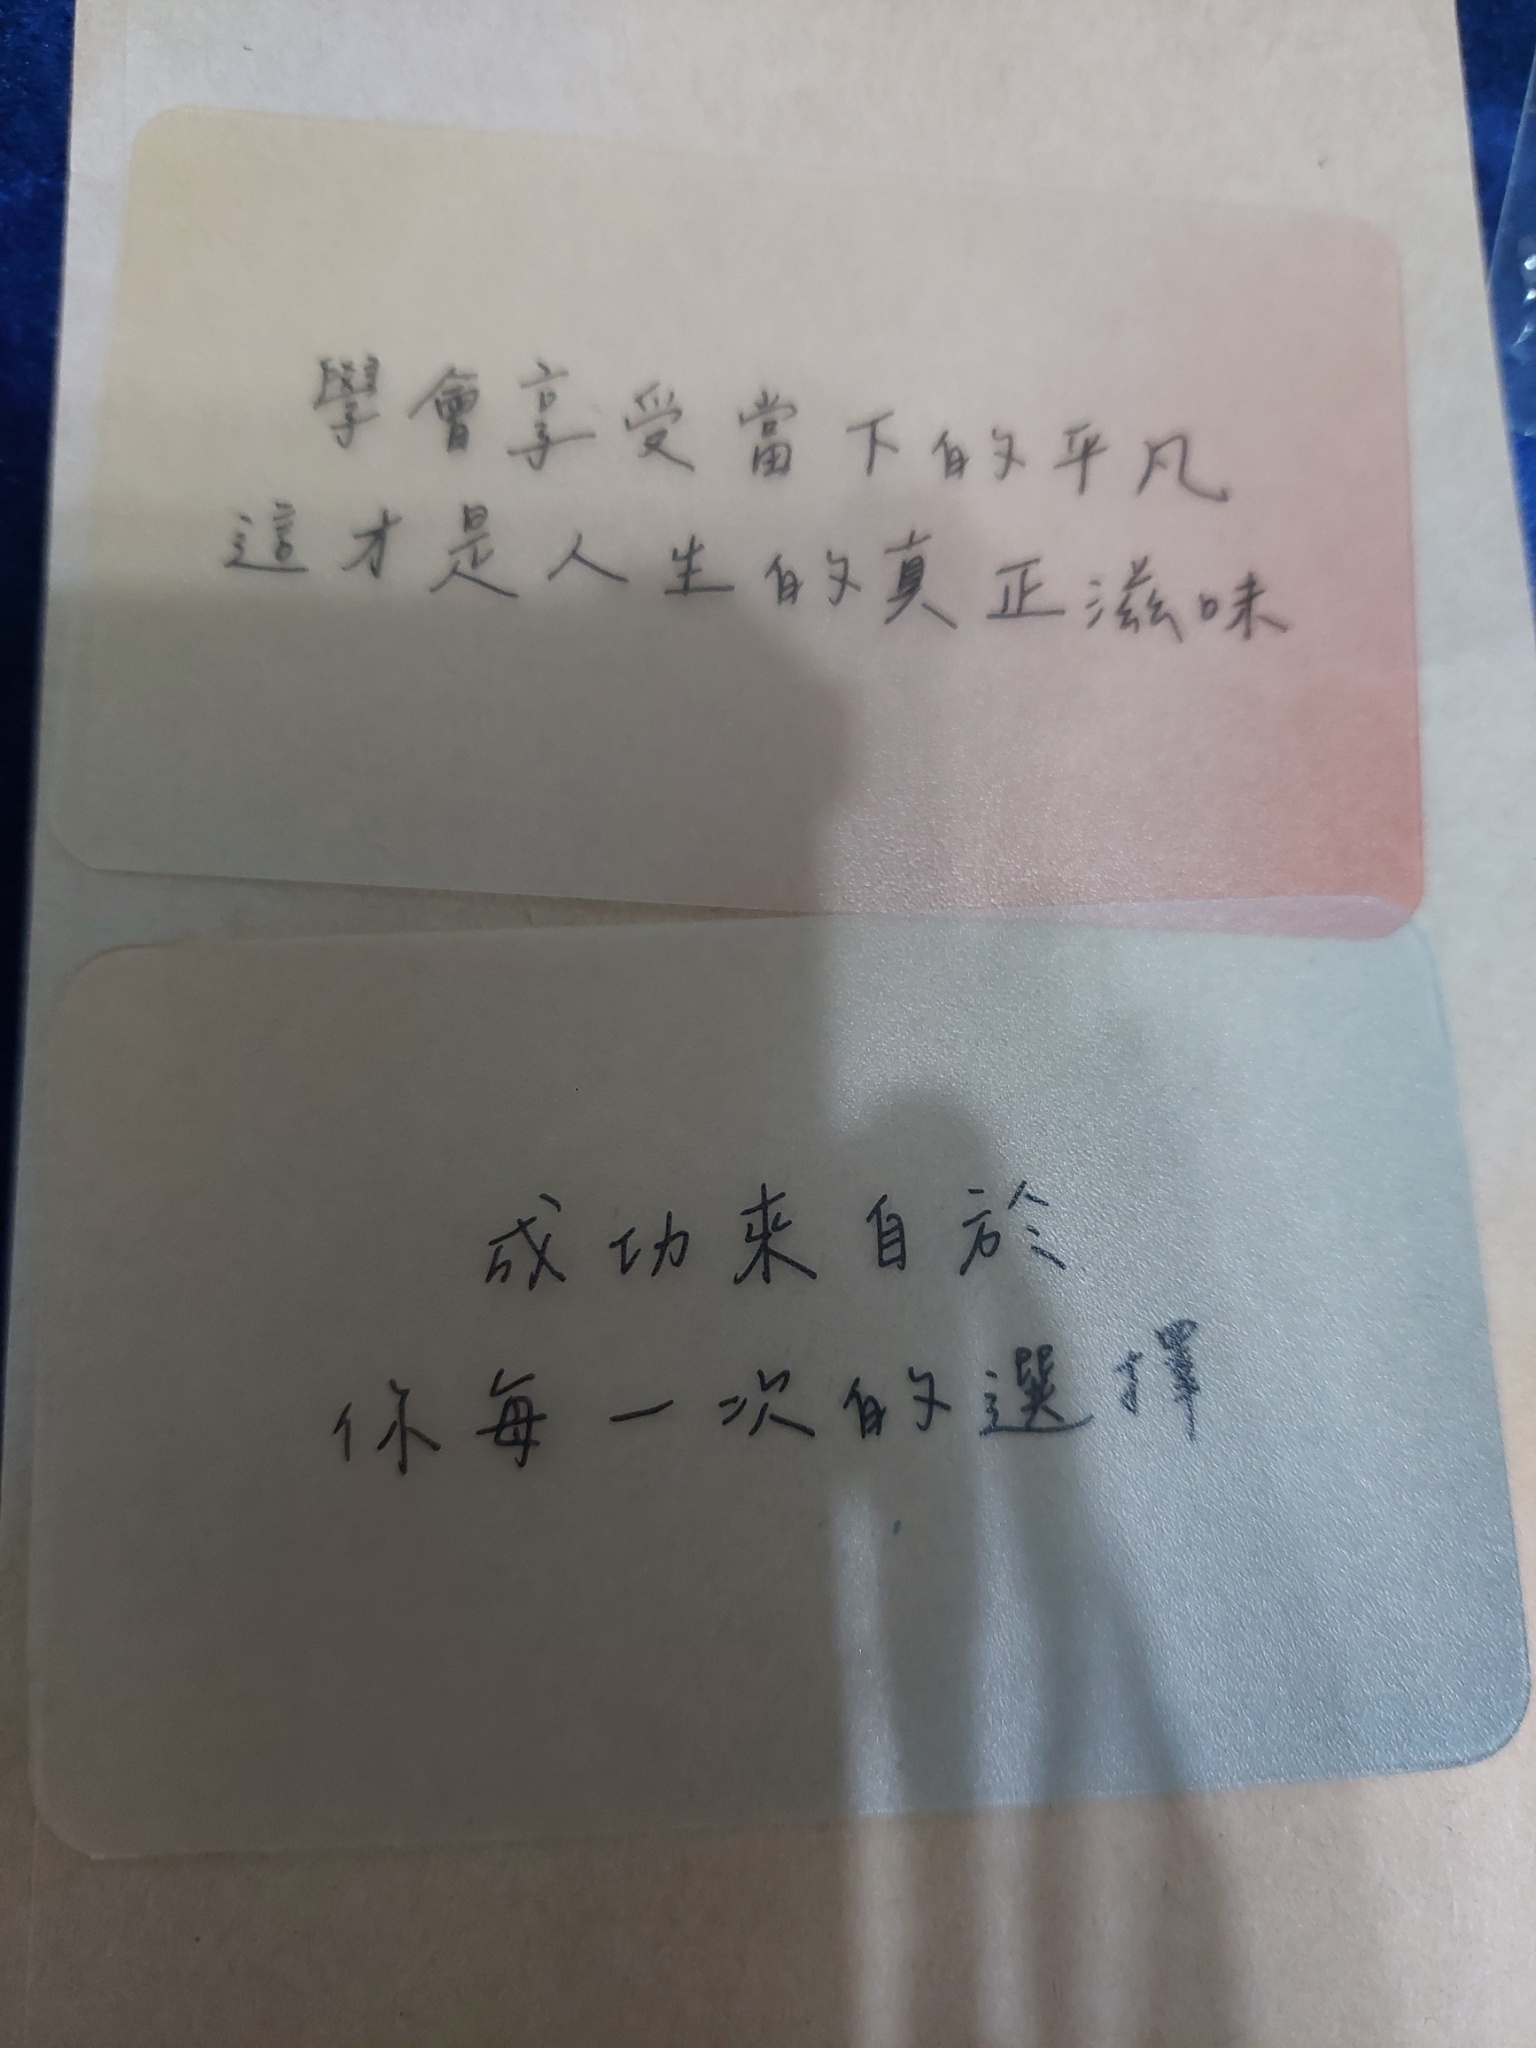 學會享受當下的平凡
這才是人生的真正滋味
成功來自於
你每一次的選擇